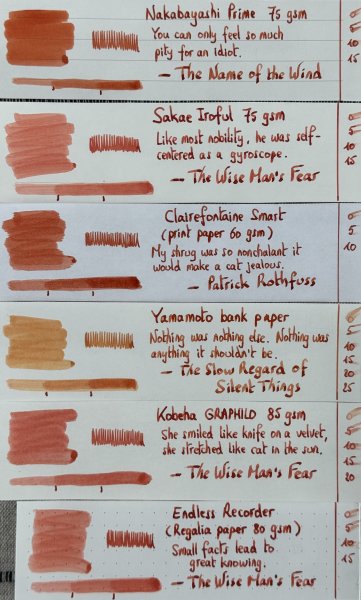 Nakabayashi Prime 75 gsm
You can only feel so much
pity for an idiot.
— The Name of the Wind
0
5
10
15
Sakae Iroful 75 gsm
Like most nobility, he was self-
centered as a gyroscope.
— The Wise Man's Fear
0
5
10
15
Clairefontaine Smart
(print paper 60 gsm)
My shrug was so nonchalant it
would make a cat jealous.
— Patrick Rothfuss
0
5
10
Yamamoto bank paper
Nothing was nothing else. Nothing was
anything it shouldn't be.
— The Slow Regard of
Silent Things
0
5
10
15
20
25
Kobeha GRAPHILO 85 gsm
She smiled like knife on a velvet,
she stretched like cat in the sun.
— The Wise Man's Fear
0
5
10
15
20
Endless Recorder
(Regalia paper 80 gsm)
Small facts lead to
great knowing.
— The Wise Man's Fear
0
5
10
15